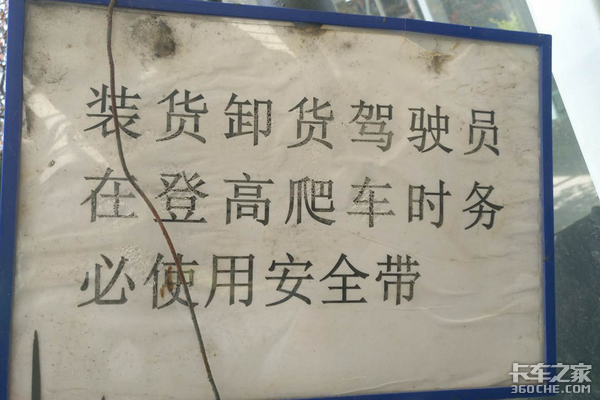 装货卸货驾驶员
在登高爬车时务
必使用安全带
卡车之家
360che.com